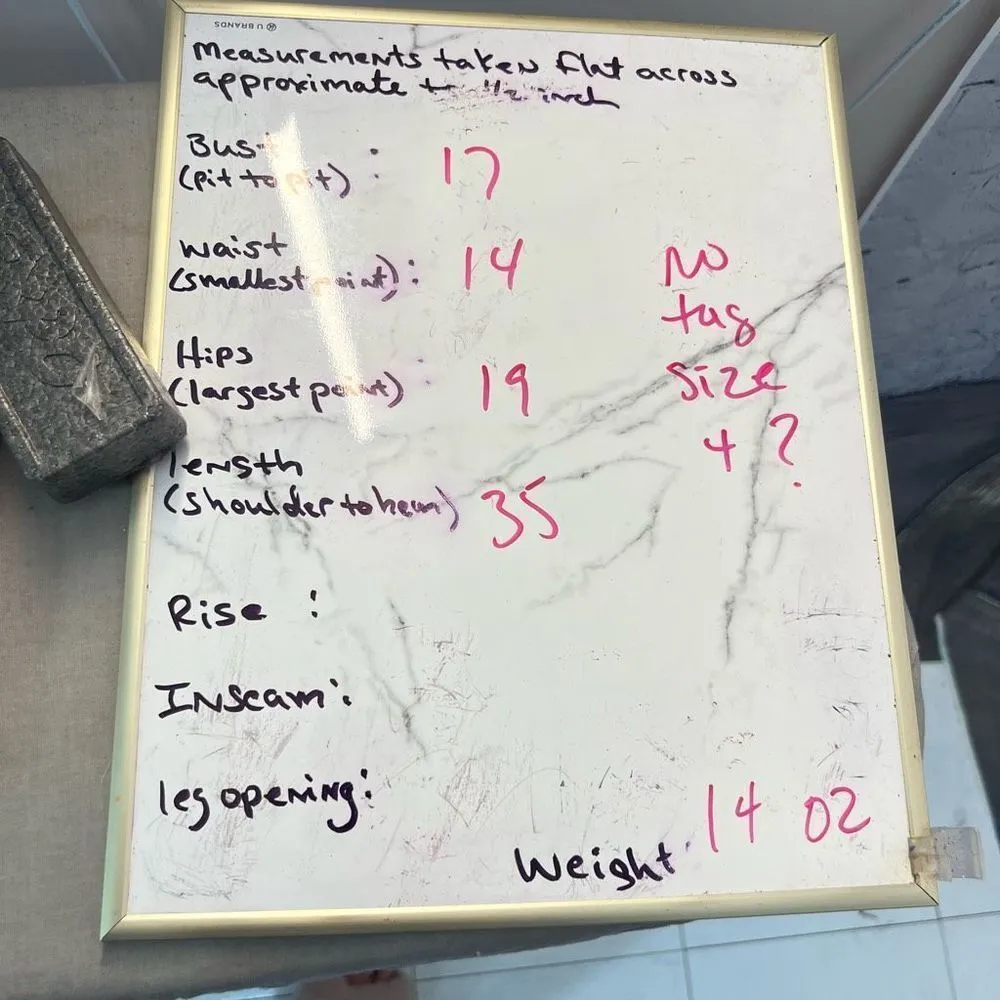 U BRANDS
Measurements taken flat across
approximate to 1/2 inch
Bust :
(pit to pit) : 17
waist
(smallest point) : 14
No
tag
size
4 ?
Hips
(largest point) : 19
length
(shoulder to hem) 35
Rise :
Inseam :
leg opening :
Weight 14 oz